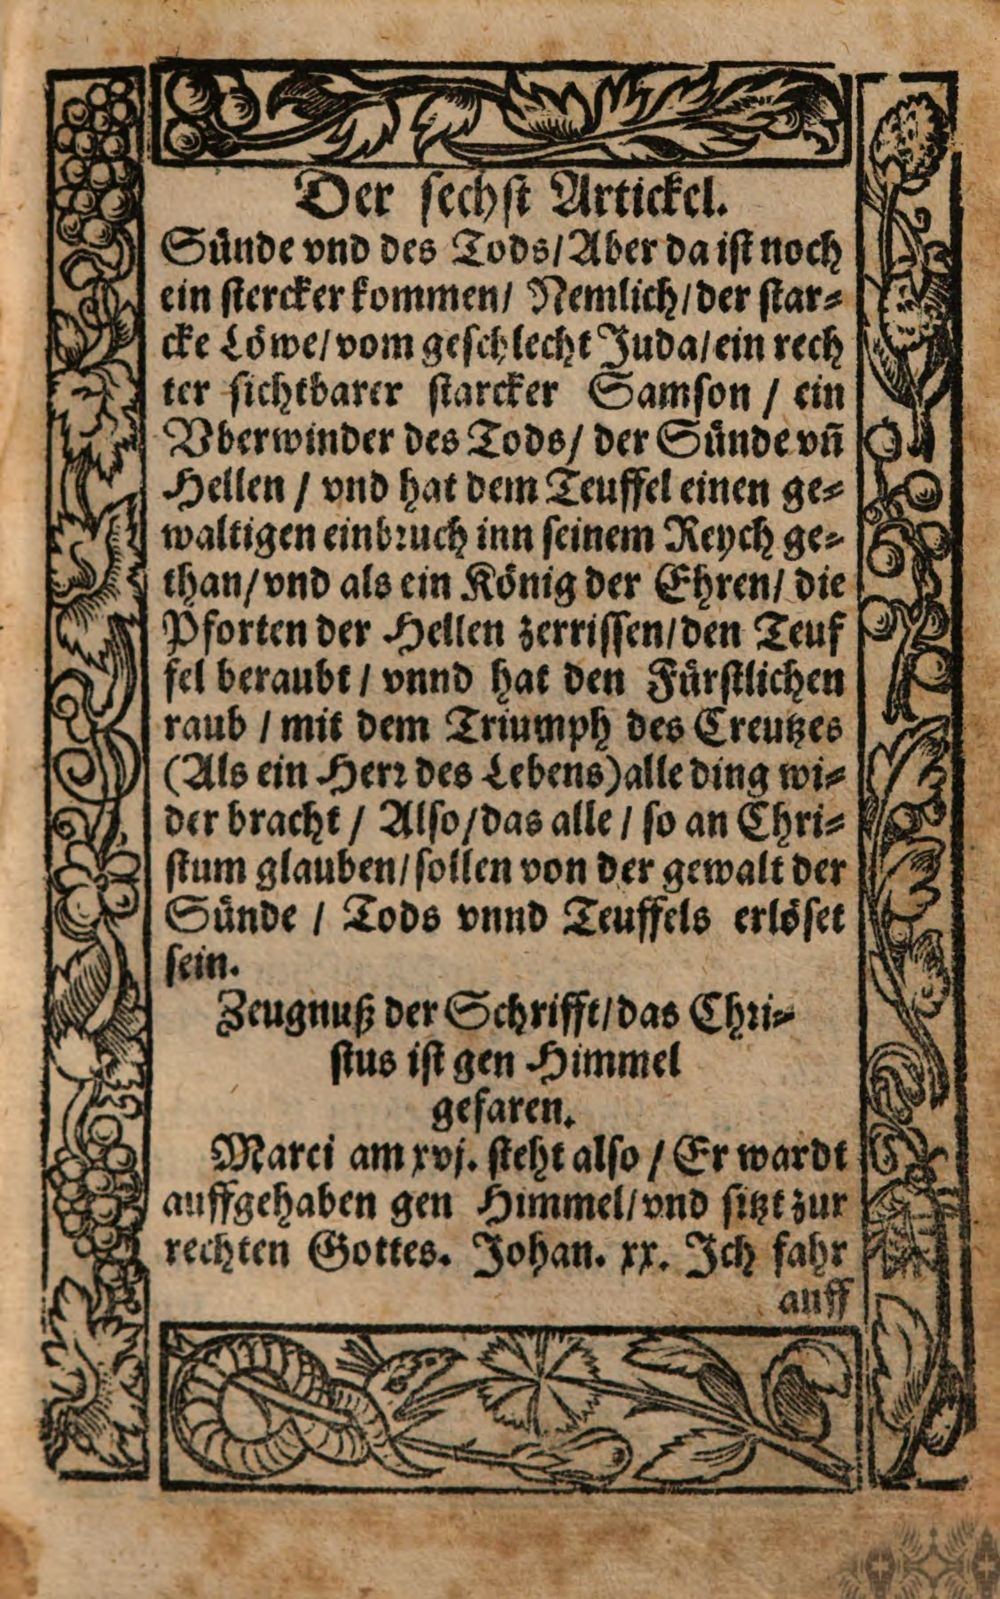 Der sechst Artickel.
Sünde vnd des Tods/ Aber da ist noch
ein stercker kommen/ Nemlich/ der star⸗
cke Löwe/ vom geschlecht Juda/ ein rech
ter sichtbarer starcker Samson / ein
Vberwinder des Tods/ der Sünde vñ
Hellen / vnd hat dem Teuffel einen ge⸗
waltigen einbruch inn seinem Reych ge⸗
than/ vnd als ein König der Ehren/ die
Pforten der Hellen zerrissen/ den Teuf
fel beraubt / vnnd hat den Fürstlichen
raub / mit dem Triumph des Creutzes
(Als ein Herr des Lebens) alle ding wi⸗
der bracht / Also/ das alle / so an Chri⸗
stum glauben/ sollen von der gewalt der
Sünde / Tods vnnd Teuffels erlöset
sein.
Zeugnuß der Schrifft/ das Chri⸗
stus ist gen Himmel
gefaren.
Marci am xvj. steht also / Er wardt
auffgehaben gen Himmel/ vnd sitzt zur
rechten Gottes. Johan. xx. Ich fahr
auff